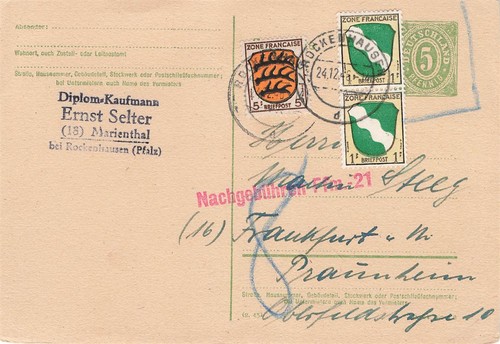 Absender:
Wohnort, auch Zustell- oder Leitpostamt
Straße, Hausnummer, Gebäudeteil, Stockwerk oder Postschließfachnummer;
bei Untermietern auch Name des Vermieters
Diplom-Kaufmann
Ernst Selter
(18) Marienthal
bei Rockenhausen (Pfalz)
ZONE FRANÇAISE
5 BRIEFPOST 5
ROCKENHAUSEN
24.12.
d
ZONE FRANÇAISE
1 BRIEFPOST 1
ZONE FRANÇAISE
1 BRIEFPOST 1
DEUTSCHLAND
5
PFENNIG
Herrn
Nachgebühren 21
Steeg
(16) Frankfurt a/M
Praunheim
8
Straße, Hausnummer, Gebäudeteil, Stockwerk oder Postschließfachnummer;
bei Untermietern auch Name des Vermieters
10